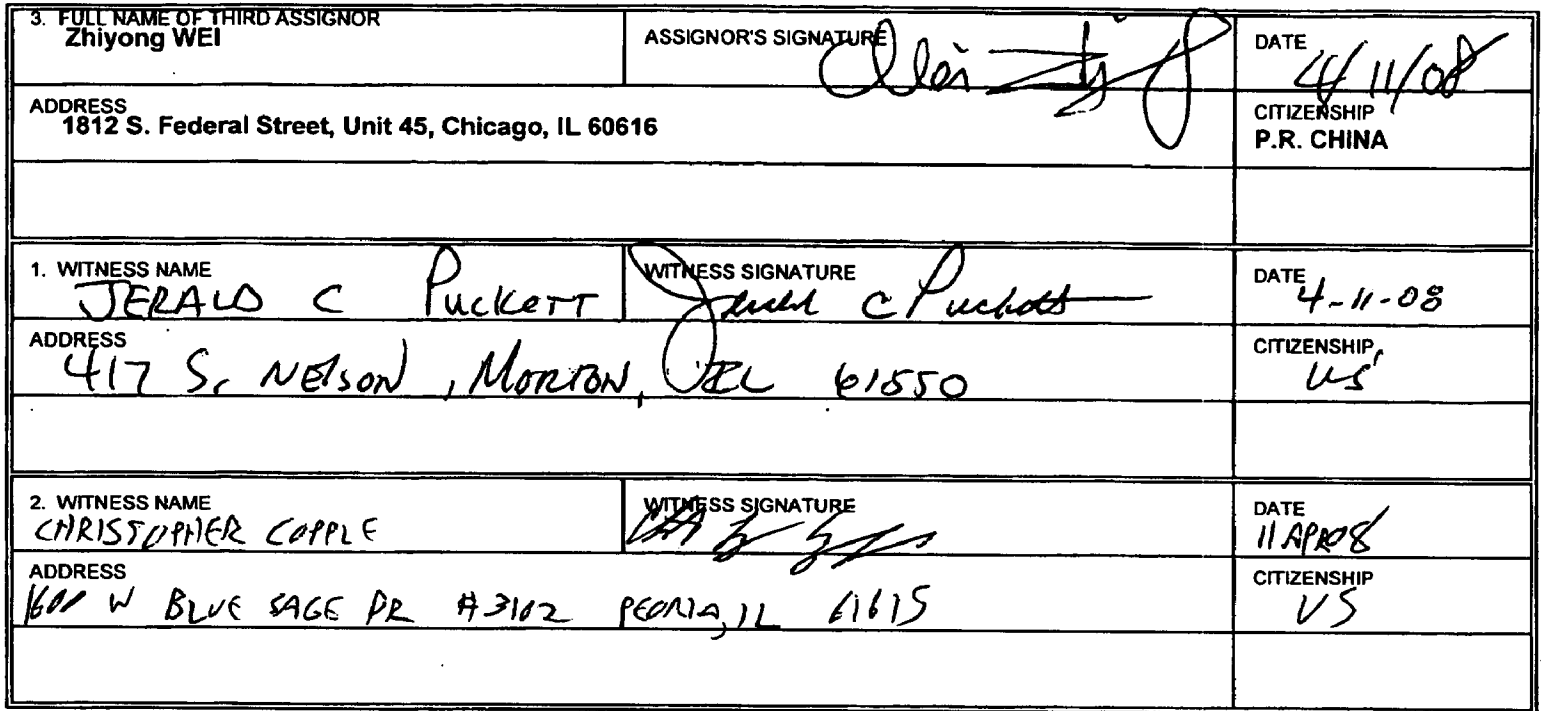 3. FULL NAME OF THIRD ASSIGNOR
Zhiyong WEI
ASSIGNOR'S SIGNATURE
DATE
4/11/08
ADDRESS
1812 S. Federal Street, Unit 45, Chicago, IL 60616
CITIZENSHIP
P.R. CHINA
1. WITNESS NAME
JERALD C PUCKETT
WITNESS SIGNATURE
Jerald C Puckett
DATE
4-11-08
ADDRESS
417 S. NELSON, MORTON, IL 61550
CITIZENSHIP
US
2. WITNESS NAME
CHRISTOPHER COPPLE
WITNESS SIGNATURE
DATE
11 APR 08
ADDRESS
W BLUE SAGE DR #3102 PEORIA, IL 61615
CITIZENSHIP
US